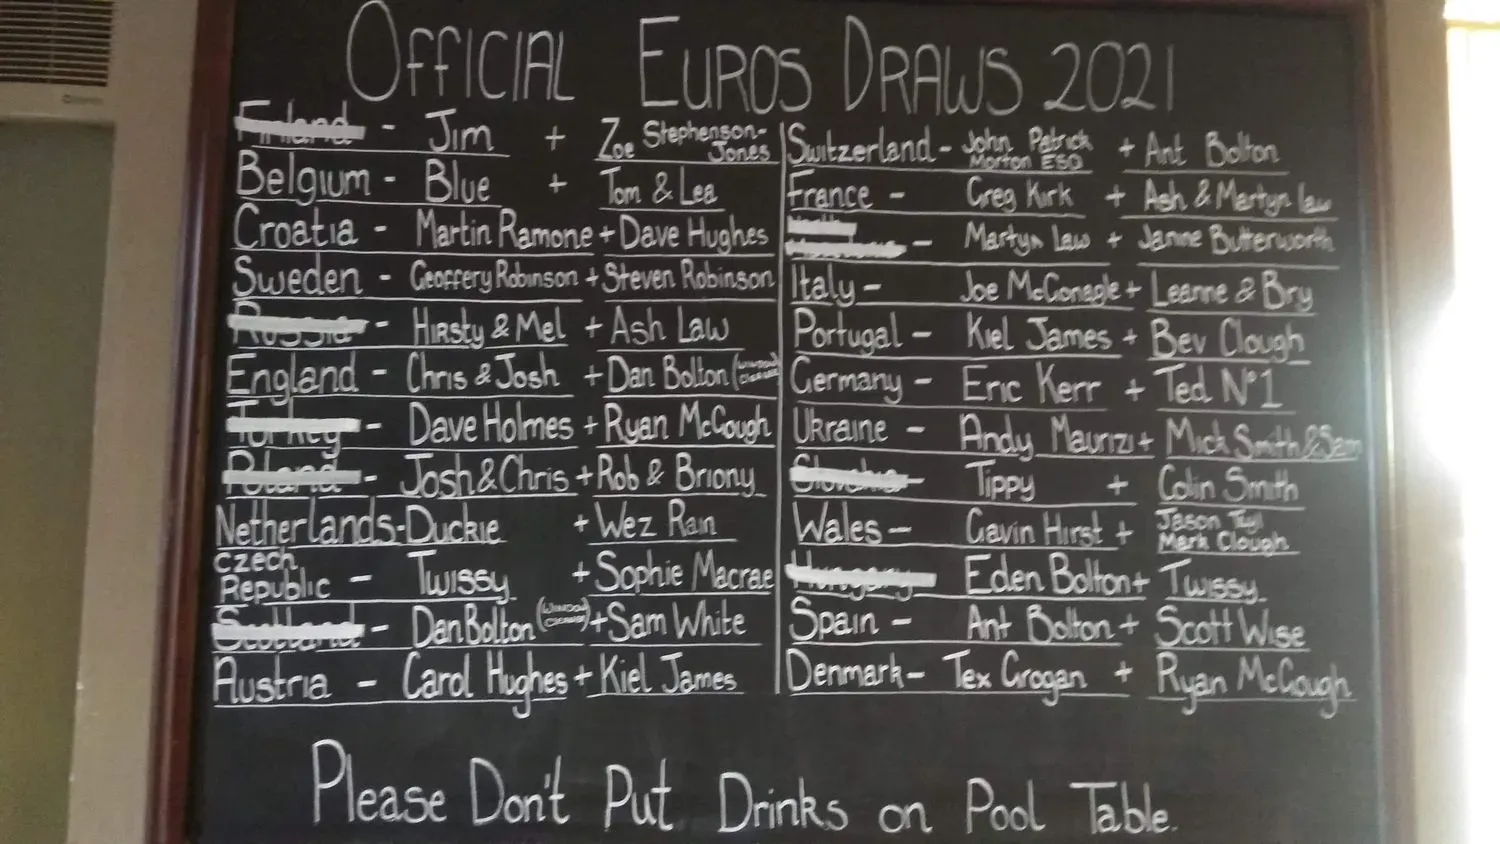 Official Euros Draws 2021
Finland - Jim + Zoe Stephenson-Jones
Belgium - Blue + Tom & Lea
Croatia - Martin Ramone + Dave Hughes
Sweden - Geoffery Robinson + Steven Robinson
Russia - Hirsty & Mel + Ash Law
England - Chris & Josh + Dan Bolton (Window Cleaner)
Turkey - Dave Holmes + Ryan McGough
Poland - Josh & Chris + Rob & Briony
Netherlands - Duckie + Wez Rain
Czech Republic - Twissy + Sophie Macrae
Scotland - Dan Bolton (Window Cleaner) + Sam White
Austria - Carol Hughes + Kiel James
Switzerland - John Patrick Morton ESQ + Ant Bolton
France - Greg Kirk + Ash & Martyn law
North Macedonia - Martyn Law + Janine Butterworth
Italy - Joe McGonagle + Leanne & Bry
Portugal - Kiel James + Bev Clough
Germany - Eric Kerr + Ted No 1
Ukraine - Andy Maurizi + Mick Smith & Sam
Slovakia - Tippy + Colin Smith
Wales - Gavin Hirst + Jason Mark Clough
Hungary Eden Bolton + Twissy
Spain - Ant Bolton + Scott Wise
Denmark - Tex Grogan + Ryan McGough
Please Don't Put Drinks on Pool Table.